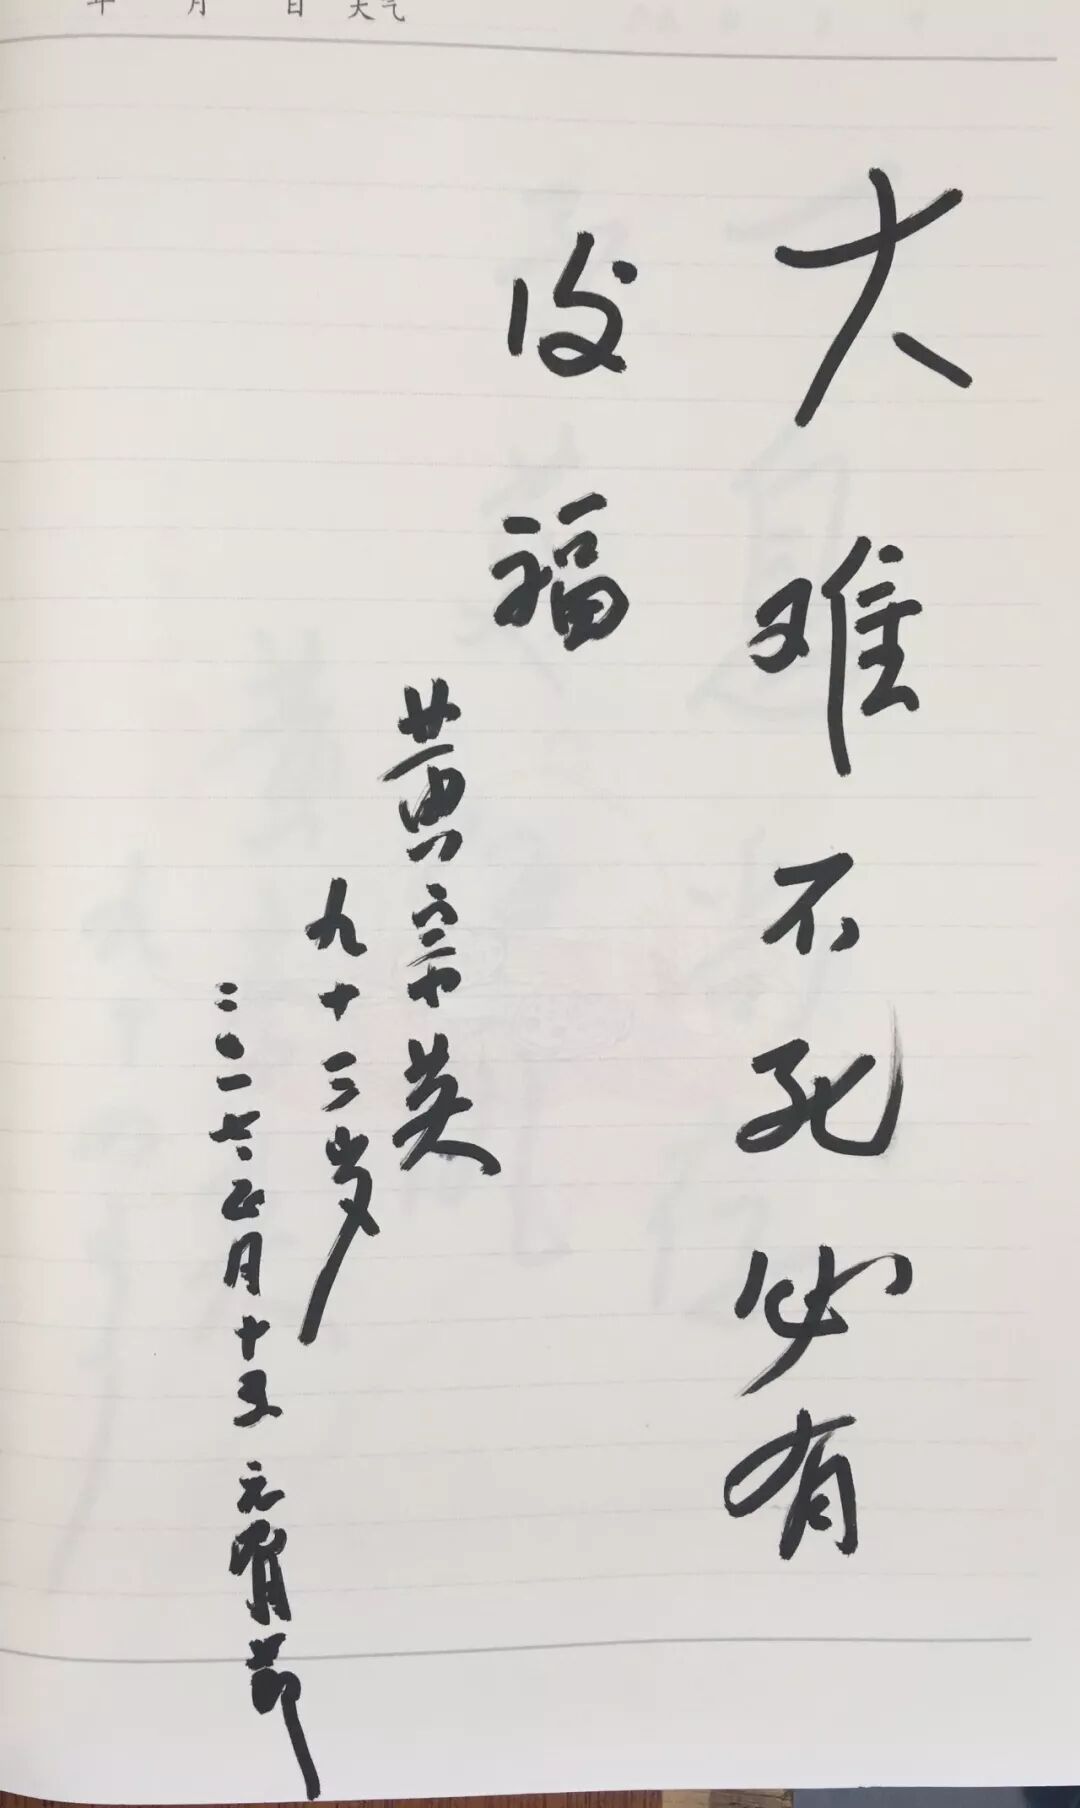 年 月 日 天气
大难不死必有
後福
黄宗英
九十三岁
二〇一七、正月十五 元宵节